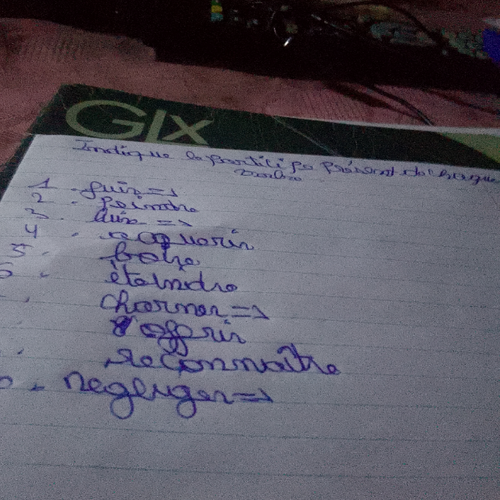 GIX
Indique le participe présent de chaque
verbe
1. fuir =>
2. peindre
3. luire =>
4. requerir
5. boire
6. éteindre
charmer =>
offrir
reconnaître
negliger =>